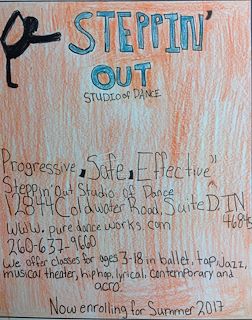 STEPPIN'
OUT
STUDIO of DANCE
Progressive, Safe, Effective"
Steppin' Out Studio of Dance
12844 Coldwater Road, Suite DTN
46845
www.puredanceworks.com
260-637-9660
We offer classes for ages 3-18 in ballet, tap, Jazz,
musical theater, hip hop, lyrical, contemporary and
acro.
Now enrolling for Summer 2017